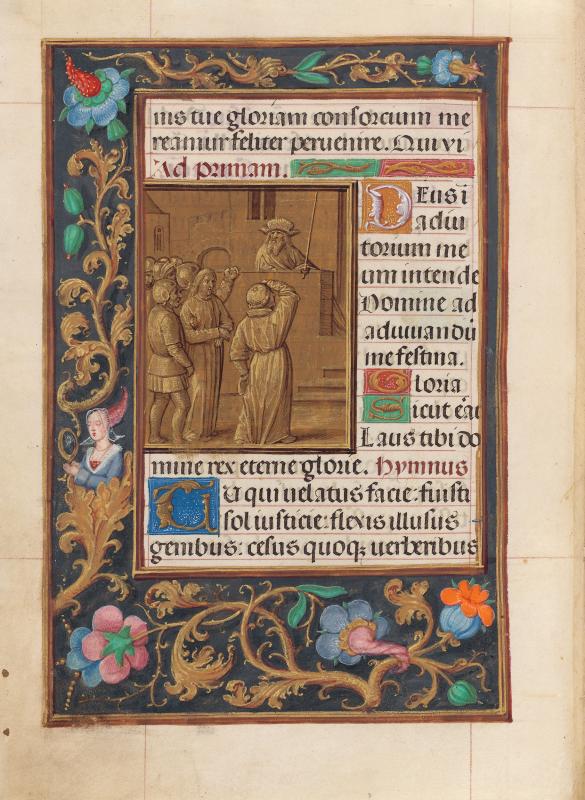 nis tue gloriam consorcium me
reamur feliter peruenire. Qui vi
Ad primam.
Deus i
adiu
torium me
um intende
Domine ad
adiuuandū
me festina.
Gloria
Sicut erat
Laus tibi do
mine rex eterne glorie. hymnus
Tu qui uelatus facie: fuisti
sol iusticie: flexis illusus
genibus: cesus quoqz uerberibus